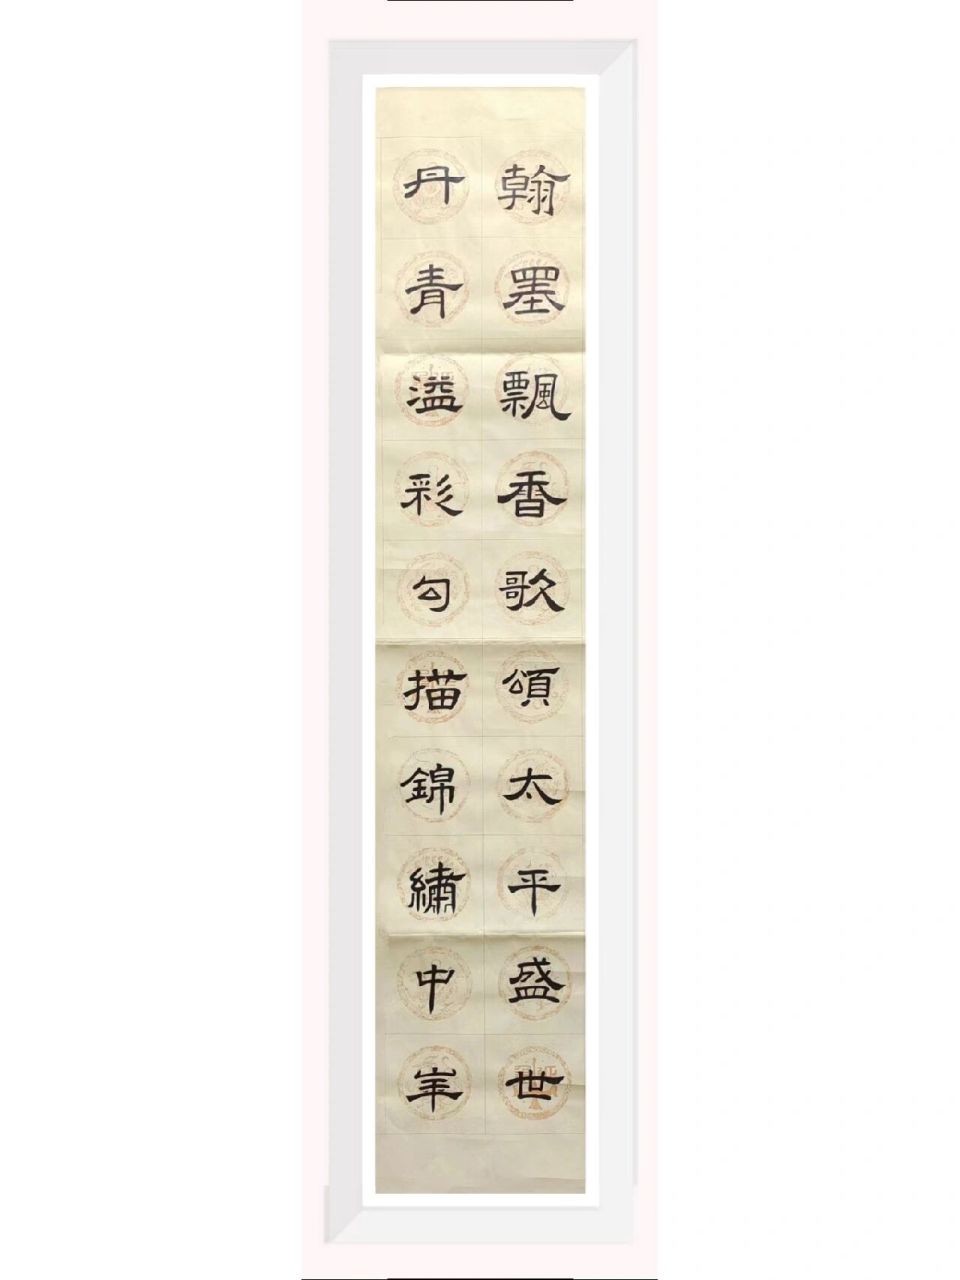 翰墨飄香歌頌太平盛世
丹青溢彩勾描錦繡中華